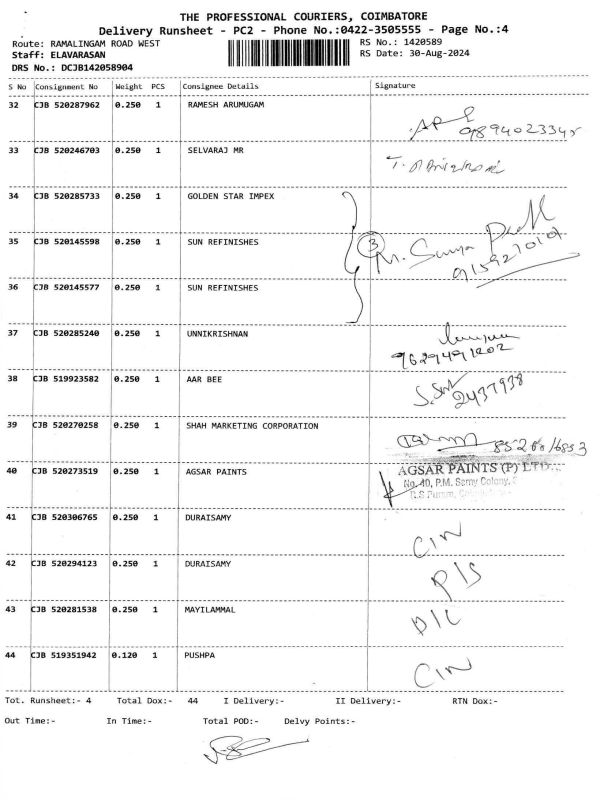 THE PROFESSIONAL COURIERS, COIMBATORE
Delivery Runsheet - PC2 - Phone No.:0422-3505555 - Page No.:4
Route: RAMALINGAM ROAD WEST
RS No.: 1420589
Staff: ELAVARASAN
RS Date: 30-Aug-2024
DRS No.: DCJB142058904
S No Consignment No Weight PCS Consignee Details Signature
32 CJB 520287962 0.250 1 RAMESH ARUMUGAM
33 CJB 520246703 0.250 1 SELVARAJ MR
34 CJB 520285733 0.250 1 GOLDEN STAR IMPEX
35 CJB 520145598 0.250 1 SUN REFINISHES 3
36 CJB 520145577 0.250 1 SUN REFINISHES
37 CJB 520285240 0.250 1 UNNIKRISHNAN
9629491202
38 CJB 519923582 0.250 1 AAR BEE 2437938
39 CJB 520270258 0.250 1 SHAH MARKETING CORPORATION
40 CJB 520273519 0.250 1 AGSAR PAINTS AGSAR PAINTS (P) LTD.
No. 40, P.M. Samy Colony,
R.S Puram,
41 CJB 520306765 0.250 1 DURAISAMY CIN
42 CJB 520294123 0.250 1 DURAISAMY P/S
43 CJB 520281538 0.250 1 MAYILAMMAL D/L
44 CJB 519351942 0.120 1 PUSHPA CIN
Tot. Runsheet:- 4 Total Dox:- 44 I Delivery:- II Delivery:- RTN Dox:-
Out Time:- In Time:- Total POD:- Delvy Points:-